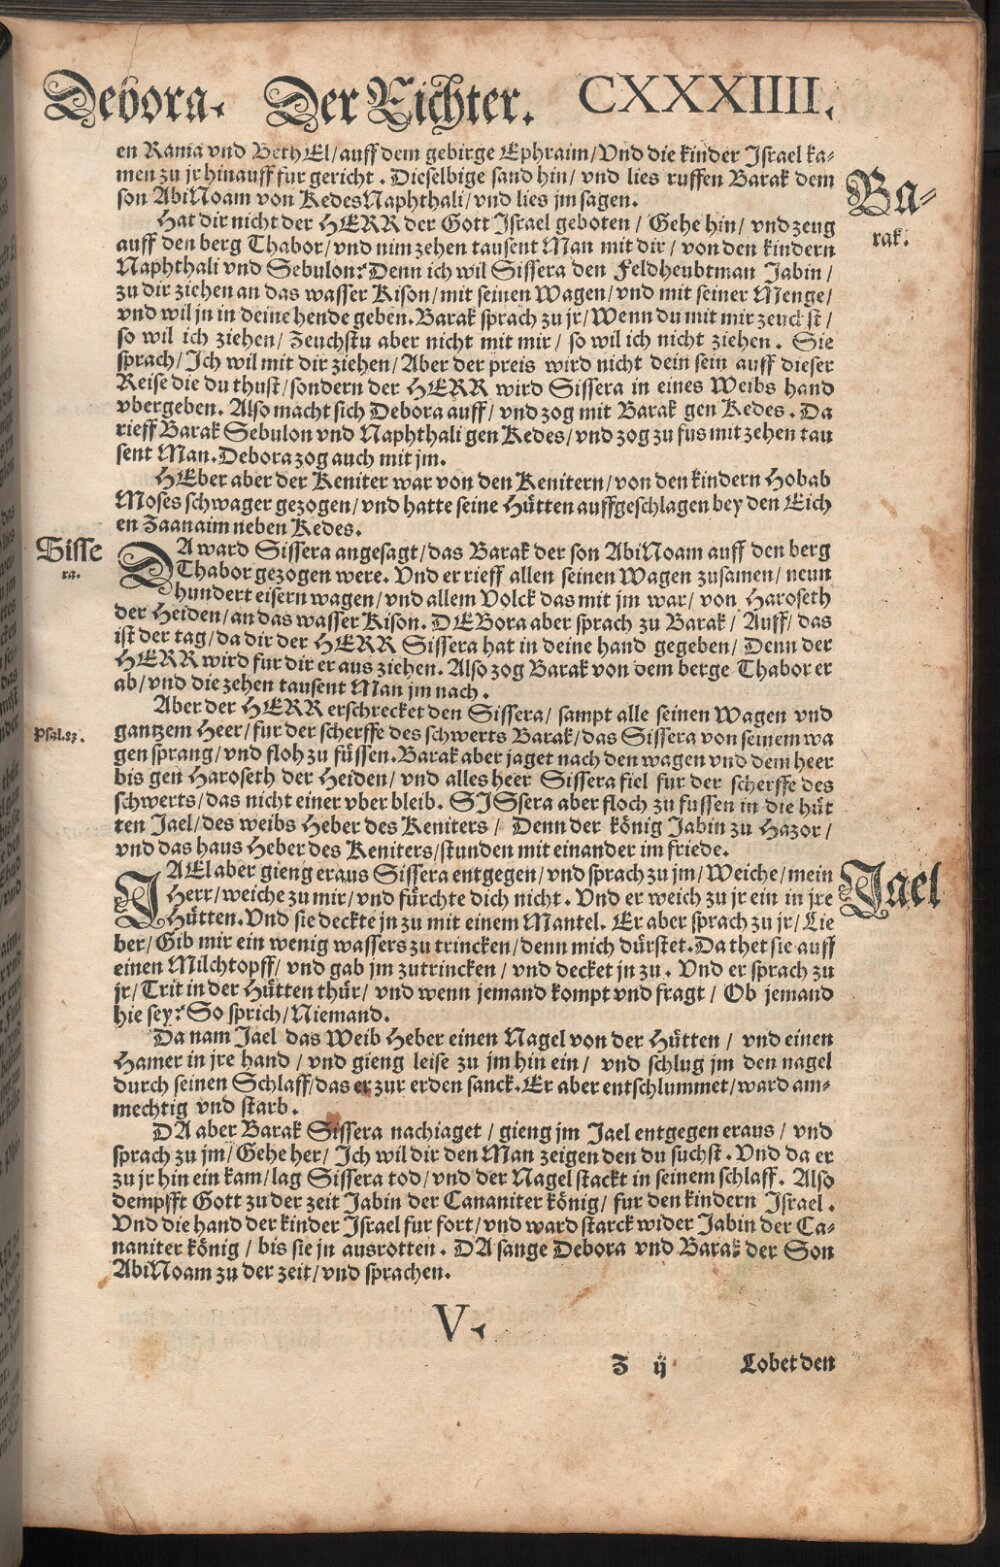 Debora. Der Richter. CXXXIIII.
en Rama vnd BethEl/auff dem gebirge Ephraim/Vnd die kinder Israel ka-
men zu jr hinauff fur gericht. Dieselbige sand hin/ vnd lies ruffen Barak dem
son AbiNoam von KedesNaphthali/vnd lies jm sagen.
Ba-
rak.
Hat dir nicht der HERR der Gott Israel geboten/ Gehe hin/ vnd zeug
auff den berg Thabor/vnd nim zehen tausent Man mit dir/ von den kindern
Naphthali vnd Sebulon? Denn ich wil Sissera den Feldheubtman Jabin/
zu dir ziehen an das wasser Kison/mit seinen Wagen/vnd mit seiner Menge/
vnd wil jn in deine hende geben. Barak sprach zu jr/Wenn du mit mir zeuchst/
so wil ich ziehen/ Zeuchstu aber nicht mit mir/ so wil ich nicht ziehen. Sie
sprach/Ich wil mit dir ziehen/Aber der preis wird nicht dein sein auff dieser
Reise die du thust/sondern der HERR wird Sissera in eines Weibs hand
vbergeben. Also macht sich Debora auff/ vnd zog mit Barak gen Kedes. Da
rieff Barak Sebulon vnd Naphthali gen Kedes/vnd zog zu fus mit zehen tau
sent Man. Debora zog auch mit jm.
HEber aber der Keniter war von den Kenitern/von den kindern Hobab
Moses schwager gezogen/vnd hatte seine Hütten auffgeschlagen bey den Eich
en Zaanaim neben Kedes.
Sisse
ra.
DA ward Sissera angesagt/das Barak der son AbiNoam auff den berg
Thabor gezogen were. Vnd er rieff allen seinen Wagen zusamen/ neun
hundert eisern wagen/vnd allem Volck das mit jm war/ von Haroseth
der Heiden/an das wasser Kison. DEBora aber sprach zu Barak/ Auff/das
ist der tag/da dir der HERR Sissera hat in deine hand gegeben/ Denn der
HERR wird fur dir er aus ziehen. Also zog Barak von dem berge Thabor er
ab/vnd die zehen tausent Man jm nach.
Aber der HERR erschrecket den Sissera/ sampt alle seinen Wagen vnd
Psal.83.
gantzem Heer/fur der scherffe des schwerts Barak/das Sissera von seinem wa
gen sprang/vnd floh zu füssen. Barak aber jaget nach den wagen vnd dem heer
bis gen Haroseth der Heiden/vnd alles heer Sissera fiel fur der scherffe des
schwerts/das nicht einer vber bleib. SISsera aber floch zu fussen in die hüt
ten Jael/des weibs Heber des Keniters/ Denn der könig Jabin zu Hazor/
vnd das haus Heber des Keniters/stunden mit einander im friede.
Jael
JAEl aber gieng eraus Sissera entgegen/vnd sprach zu jm/Weiche/mein
Herr/weiche zu mir/vnd fürchte dich nicht. Vnd er weich zu jr ein in jre
Hütten. Vnd sie deckte jn zu mit einem Mantel. Er aber sprach zu jr/Lie
ber/Gib mir ein wenig wassers zu trincken/denn mich dürstet. Da thet sie auff
einen Milchtopff/vnd gab jm zutrincken/vnd decket jn zu. Vnd er sprach zu
jr/Trit in der Hütten thür/ vnd wenn jemand kompt vnd fragt/ Ob jemand
hie sey? So sprich/Niemand.
Da nam Jael das Weib Heber einen Nagel von der Hütten/ vnd einen
Hamer in jre hand/vnd gieng leise zu jm hin ein/ vnd schlug jm den nagel
durch seinen Schlaff/das er zur erden sanck. Er aber entschlummet/ward am-
mechtig vnd starb.
DA aber Barak Sissera nachiaget/ gieng jm Jael entgegen eraus/ vnd
sprach zu jm/Gehe her/Ich wil dir den Man zeigen den du suchst. Vnd da er
zu jr hin ein kam/lag Sissera tod/vnd der Nagel stackt in seinem schlaff. Also
dempfft Gott zu der zeit Jabin der Cananiter könig/ fur den kindern Israel.
Vnd die hand der kinder Israel fur fort/vnd ward starck wider Jabin der Ca-
naniter könig/ bis sie jn ausrotten. DA sange Debora vnd Barak der Son
AbiNoam zu der zeit/vnd sprachen.
V.
Z ij Lobet den